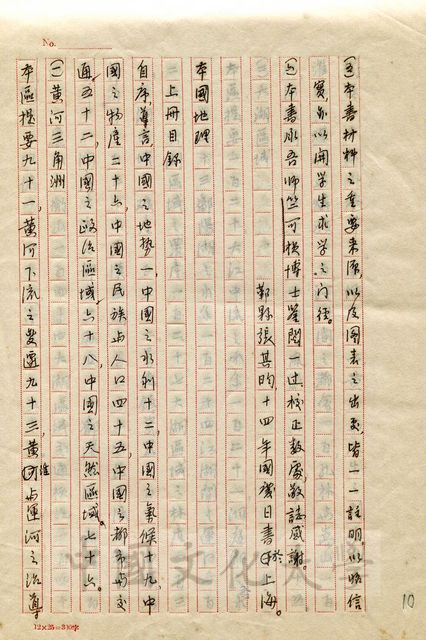 No.
㈤本書材料之重要來源，以及圖表之出處，皆一一註明以昭信
實，亦以開學生求學之門徑。
㈥本書承吾師竺可楨博士鑒閱一過，校正數處，敬誌感謝。
鄞縣張其昀，十四年國慶日書於上海。
本國地理
上冊目錄
自序，導言，中國之地勢一，中國之水利十二，中國之氣候十九，中
國之物產二十六，中國之民族與人口四十五，中國之都市與交
通五十二，中國之政治區域六十八，中國之天然區域七十六。
㈠黃河三角洲
本區概要九十一，黃河下流之變遷九十三，黃淮與運河之治導
10
12×25=300字
中國文化大學